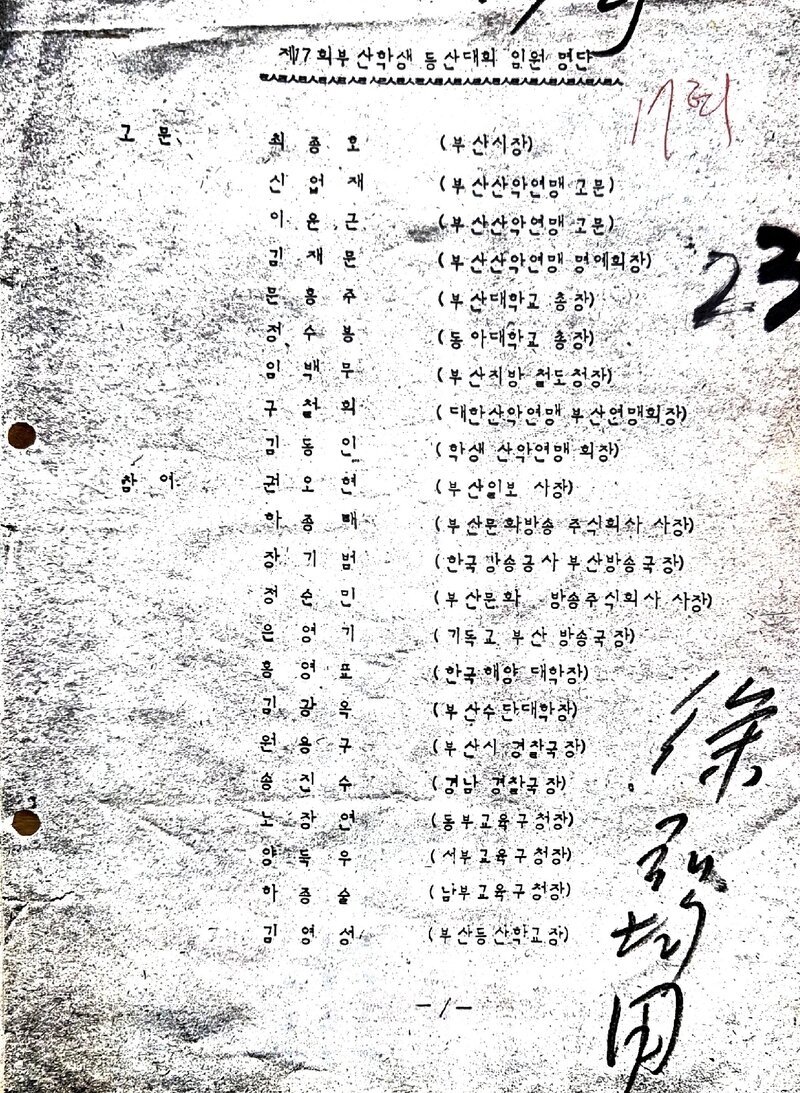 제17회부산학생 등산대회 임원 명단
17회
고 문 최 종 호 (부산시장)
신 업 재 (부산산악연맹 고문)
이 윤 근 (부산산악연맹 고문)
김 재 문 (부산산악연맹 명예회장)
23
문 홍 주 (부산대학교 총장)
정 수 봉 (동아대학교 총장)
임 백 무 (부산지방 철도청장)
구 철 회 (대한산악연맹 부산연맹회장)
김 동 인 (학생 산악연맹 회장)
참 여 권 오 현 (부산일보 사장)
하 종 배 (부산문화방송 주식회사 사장)
장 기 범 (한국방송공사 부산방송국장)
정 순 민 (부산문화 방송주식회사 사장)
은 영 기 (기독교 부산 방송국장)
홍 영 표 (한국해양 대학장)
김 광 옥 (부산수산대학장)
원 용 구 (부산시 경찰국장)
송 진 수 (경남 경찰국장)
노 장 연 (동부교육구청장)
양 득 우 (서부교육구청장)
하 종 술 (남부교육구청장)
김 영 성 (부산등산학교장)
-1-